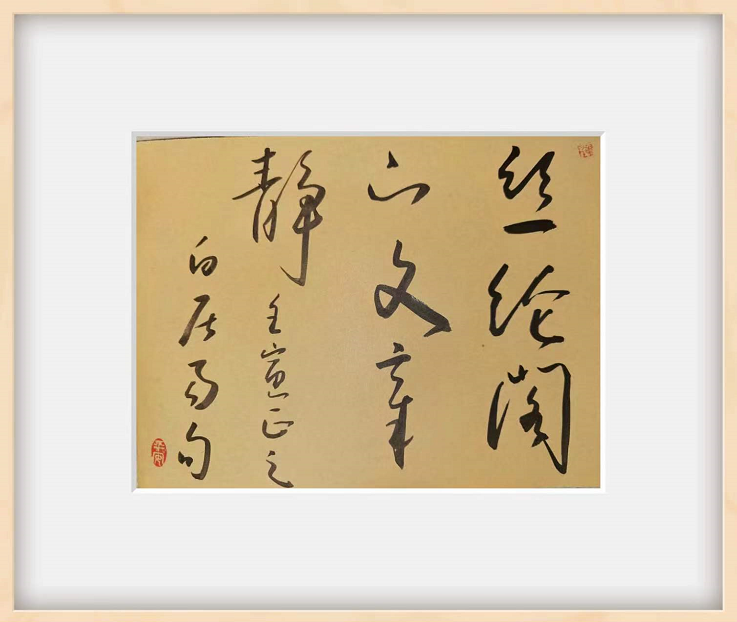 丝纶阁
下文章
静 壬寅正之
白居易句